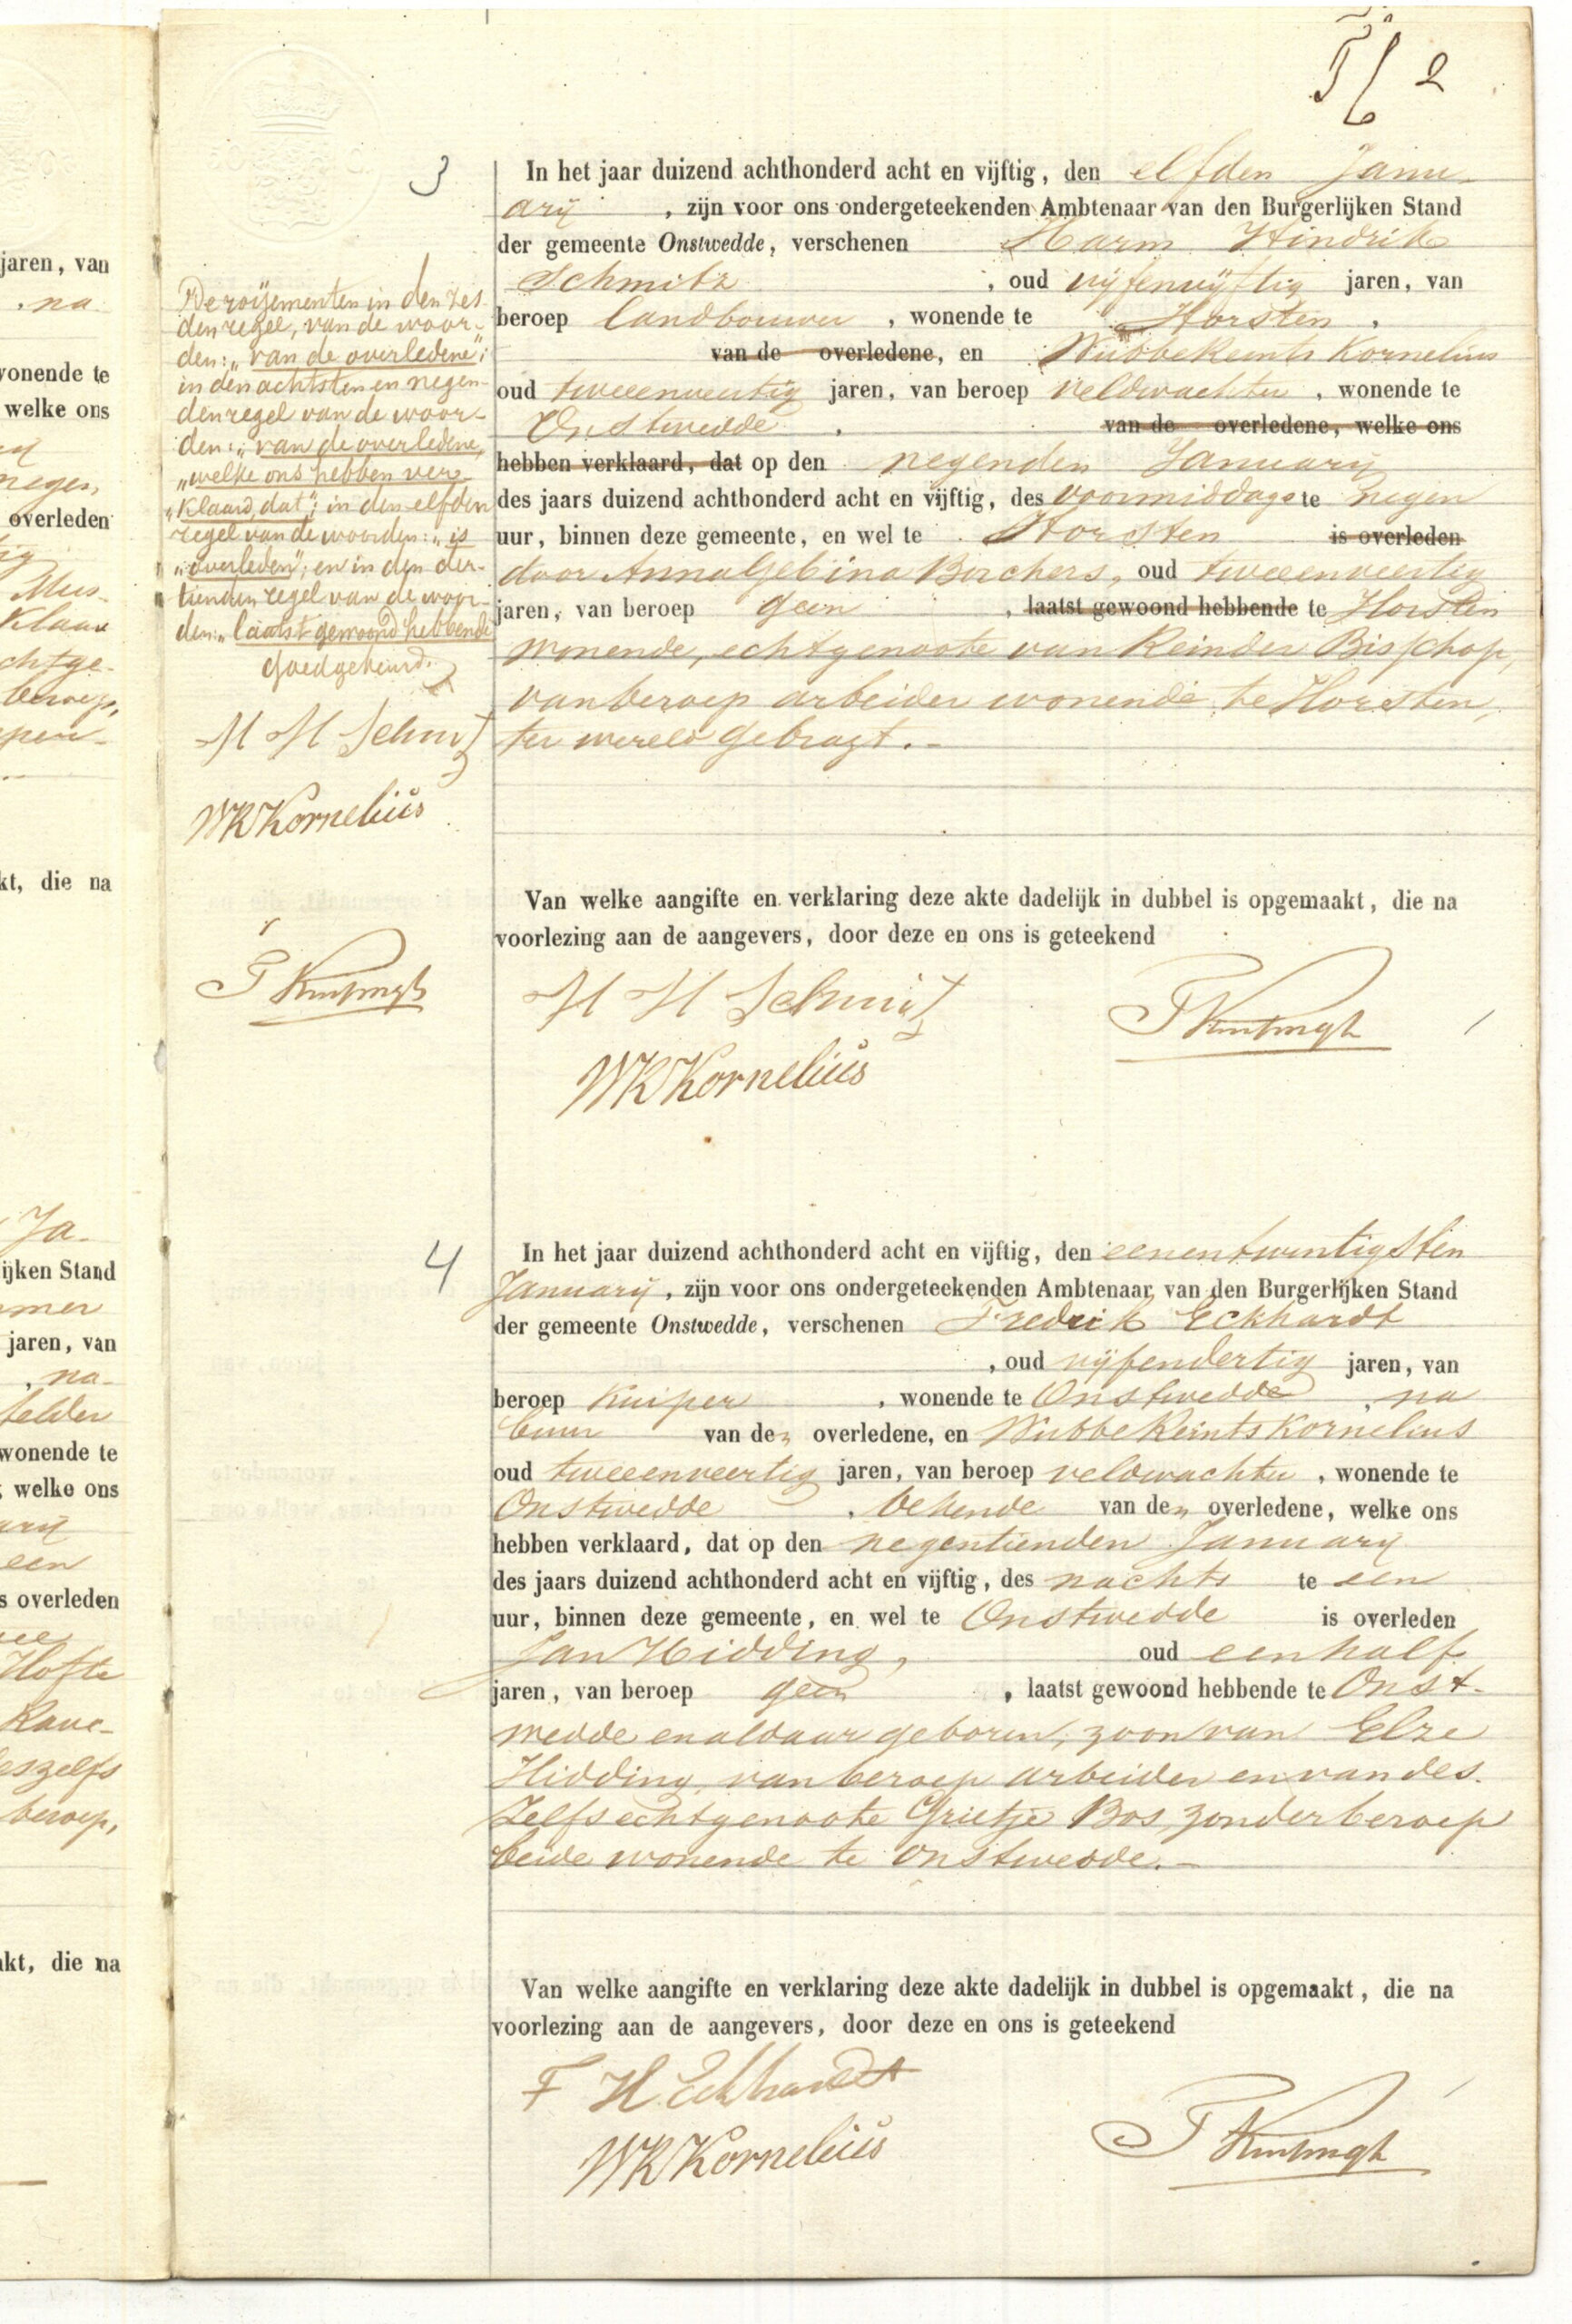 2
jaren, van
na
wonende te
welke ons
overleden
Mus-
Klaas
chtge-
beroep,
kt, die na
Ja-
ijken Stand
mer
jaren, van
, na-
helder
wonende te
; welke ons
ary
een
s overleden
Hofte
eszelfs
beroep,
akt, die na
3
In het jaar duizend achthonderd acht en vijftig, den elfden Janu-
arij , zijn voor ons ondergeteekenden Ambtenaar van den Burgerlijken Stand
der gemeente Onstwedde, verschenen Harm Hindrik
Schmitz , oud vijfenvijftig jaren, van
beroep landbouwer , wonende te Horsten ,
van de overledene, en Wubbe Reints Kornelius
oud tweeenveertig jaren, van beroep veldwachter , wonende te
Onstwedde , van de overledene, welke ons
hebben verklaard, dat op den negenden January
des jaars duizend achthonderd acht en vijftig, des voormiddags te negen
uur, binnen deze gemeente, en wel te Horsten is overleden
door Anna Gebina Borchers, oud tweeenveertig
jaren, van beroep geen , laatst gewoond hebbende te Horsten
wonende, echtgenoote van Reinder Bisschop,
van beroep arbeider wonende te Horsten,
ter wereld gebragt.-
De roijementen in den zes
den regel, van de woor-
den: „van de overledene";
in den achtsten en negen-
den regel van de woor-
den: „van de overledene,
„welke ons hebben ver-
„klaard, dat"; in den elfden
regel van de woorden: „is
„overleden"; en in den der-
tienden regel van de woor-
den: „laatst gewoond hebbende
goedgekeurd.
H H Schmitz
WKKornelius
Van welke aangifte en verklaring deze akte dadelijk in dubbel is opgemaakt, die na
voorlezing aan de aangevers, door deze en ons is geteekend
H H Schmitz
WKKornelius
4
In het jaar duizend achthonderd acht en vijftig, den eenentwintigsten
January, zijn voor ons ondergeteekenden Ambtenaar van den Burgerlijken Stand
der gemeente Onstwedde, verschenen Fredrik Eckhardt
, oud vijfendertig jaren, van
beroep Kuiper , wonende te Onstwedde , na
buur van den overledene, en Wubbe Reints Kornelius
oud tweeenveertig jaren, van beroep veldwachter , wonende te
Onstwedde , bekende van den overledene, welke ons
hebben verklaard, dat op den negentienden January
des jaars duizend achthonderd acht en vijftig, des nachts te een
uur, binnen deze gemeente, en wel te Onstwedde is overleden
Jan Hidding, oud een half
jaren, van beroep geen , laatst gewoond hebbende te Onst-
wedde en aldaar geboren, zoon van Elze
Hidding, van beroep arbeider en van des-
zelfs echtgenoote Grietje Bos, zonder beroep
beide wonende te Onstwedde.-
Van welke aangifte en verklaring deze akte dadelijk in dubbel is opgemaakt, die na
voorlezing aan de aangevers, door deze en ons is geteekend
F H Eckhardt
WKKornelius